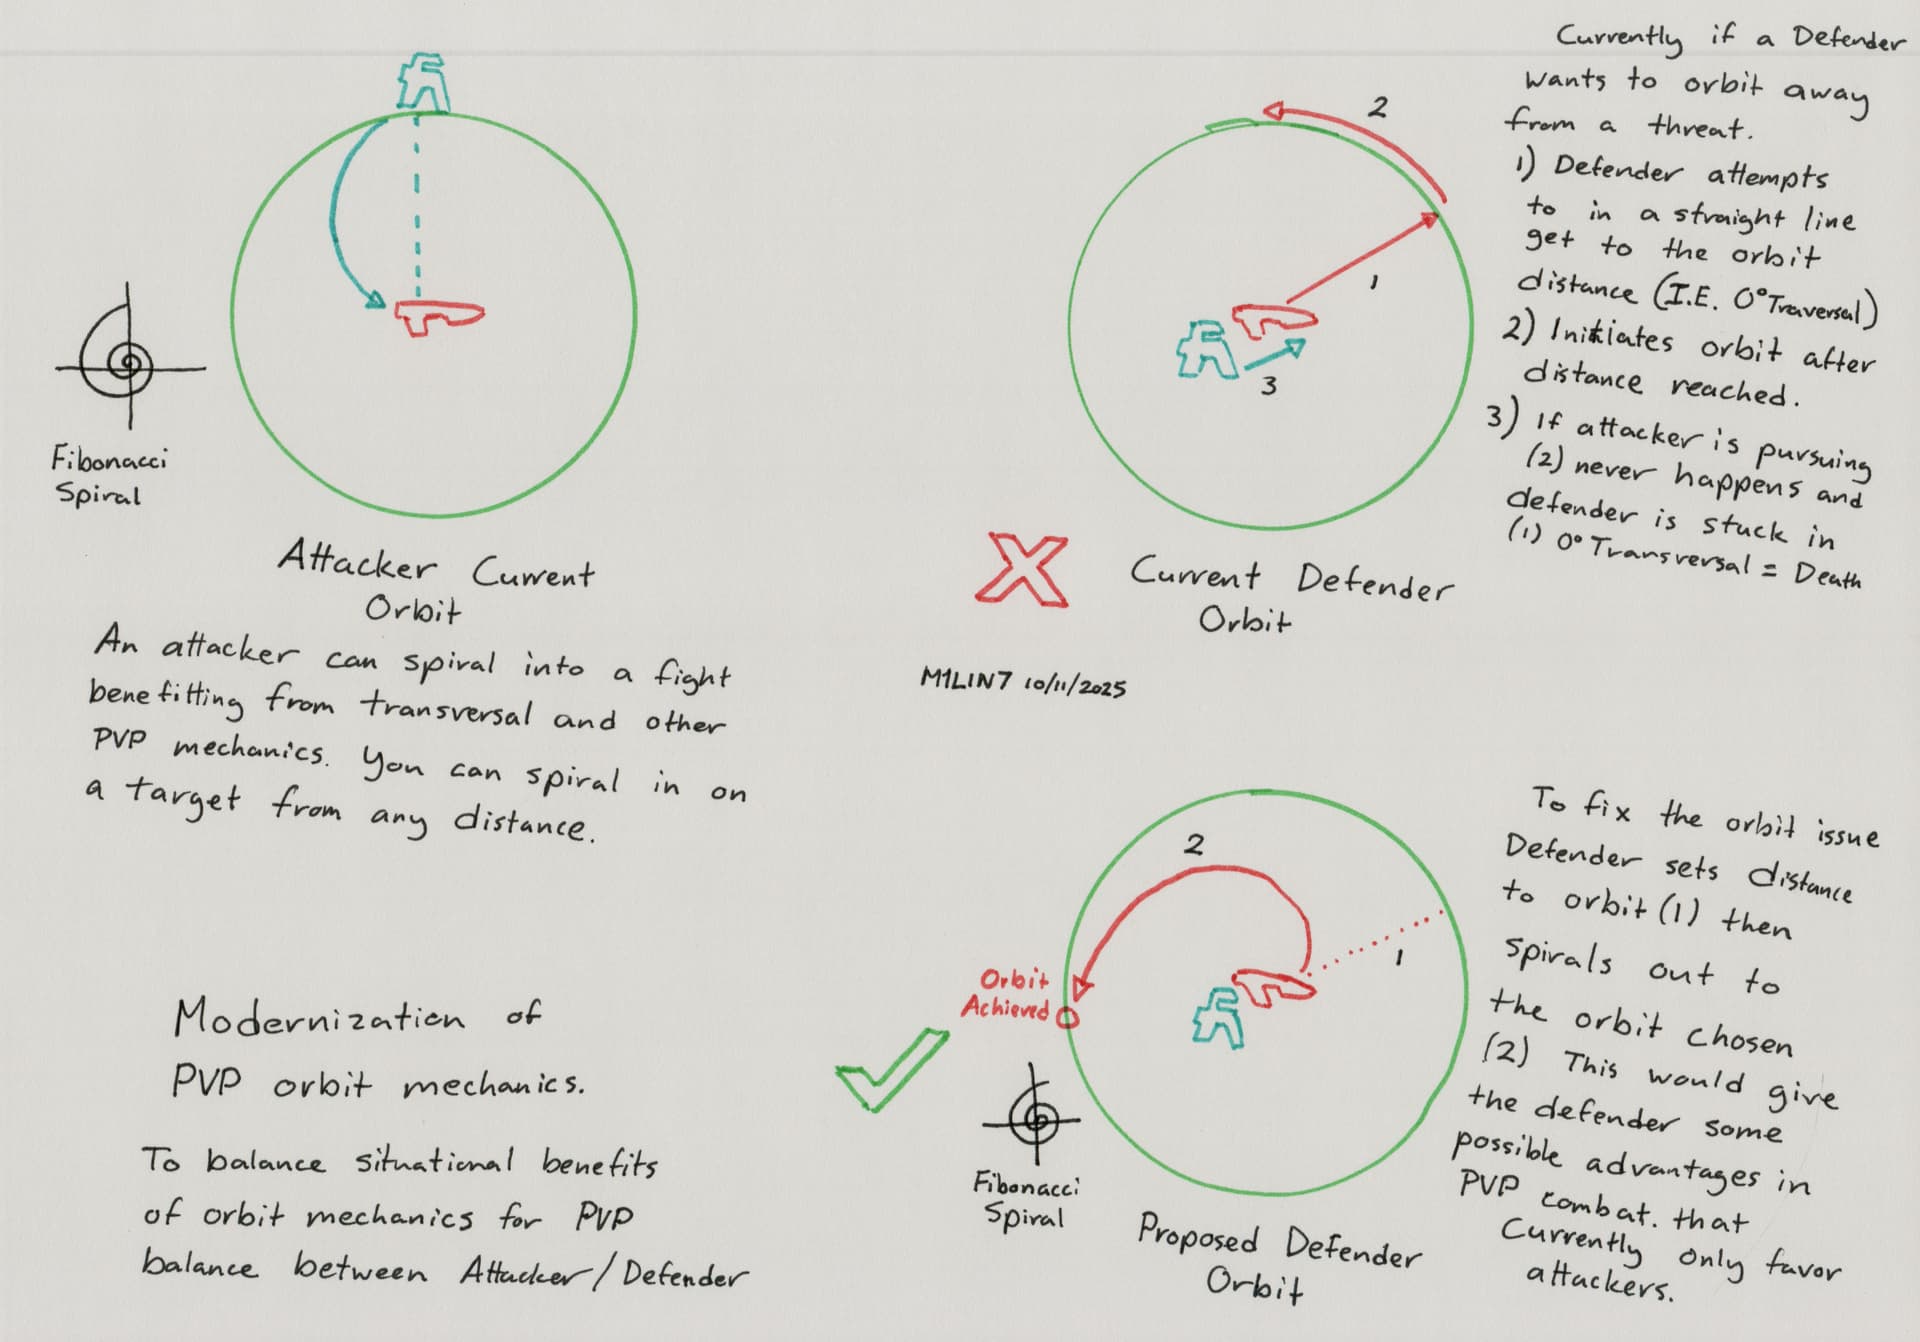 Fibonacci
Spiral
Attacker Current
Orbit
An attacker can spiral into a fight
benefitting from transversal and other
PVP mechanics. You can spiral in on
a target from any distance.
2
1
3
Current Defender
Orbit
M1LIN7 10/11/2025
Currently if a Defender
wants to orbit away
from a threat.
1) Defender attempts
to in a straight line
get to the orbit
distance (I.E. 0° Traversal)
2) Initiates orbit after
distance reached.
3) If attacker is pursuing
(2) never happens and
defender is stuck in
(1) 0° Transversal = Death
Modernization of
PVP orbit mechanics.
To balance situational benefits
of orbit mechanics for PVP
balance between Attacker/Defender
2
1
Orbit
Achieved
Fibonacci
Spiral
Proposed Defender
Orbit
To fix the orbit issue
Defender sets distance
to orbit (1) then
spirals out to
the orbit chosen
(2) This would give
the defender some
possible advantages in
PVP combat. that
Currently only favor
attackers.